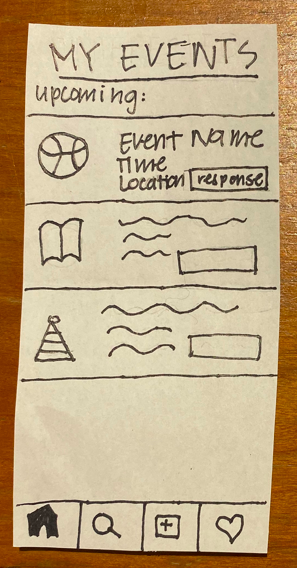 MY EVENTS
upcoming:
Event Name
Time
Location response